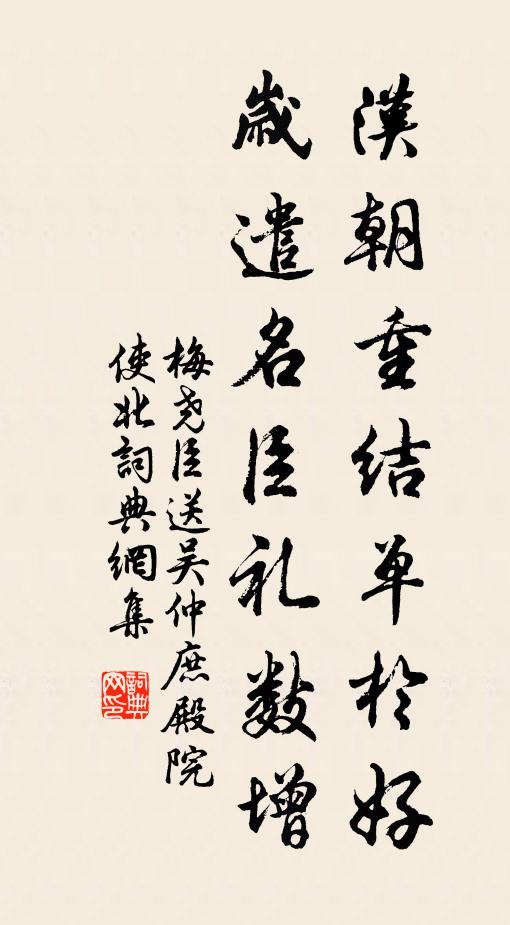 漢朝重结单於好
歲遣名臣礼数增
梅尧臣送吴仲庶殿院
使北詞典網集
詞典
网印